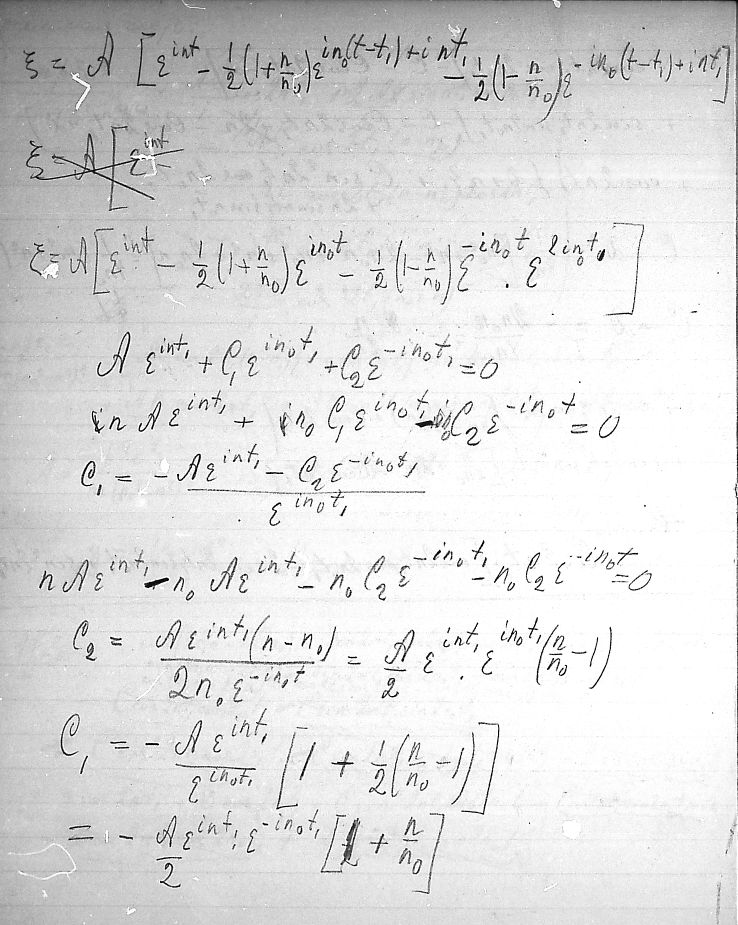 ξ = A [ε^{int} - 1/2(1+n/n₀)ε^{in₀(t-t₁)+int₁} - 1/2(1-n/n₀)ε^{-in₀(t-t₁)+int₁}]
ξ = A [ε^{int}
ξ = A[ε^{int} - 1/2(1+n/n₀)ε^{in₀t} - 1/2(1-n/n₀)ε^{-in₀t} . ε^{2in₀t₁}]
A ε^{int₁} + C₁ε^{in₀t₁} + C₂ε^{-in₀t₁} = 0
in Aε^{int₁} + in₀ C₁ε^{in₀t₁} - in₀C₂ε^{-in₀t} = 0
C₁ = (-Aε^{int₁} - C₂ε^{-in₀t₁})/(ε^{in₀t₁})
nAε^{int₁} - n₀Aε^{int₁} - n₀C₂ε^{-in₀t₁} - n₀C₂ε^{-in₀t} = 0
C₂ = (Aε^{int₁}(n-n₀))/(2n₀ε^{-in₀t}) = A/2 ε^{int₁} . ε^{in₀t₁}(n/n₀ - 1)
C₁ = - (Aε^{int₁})/(ε^{in₀t₁}) [1 + 1/2(n/n₀ - 1)]
= - A/2 ε^{int₁} . ε^{-in₀t₁} [1 + n/n₀]